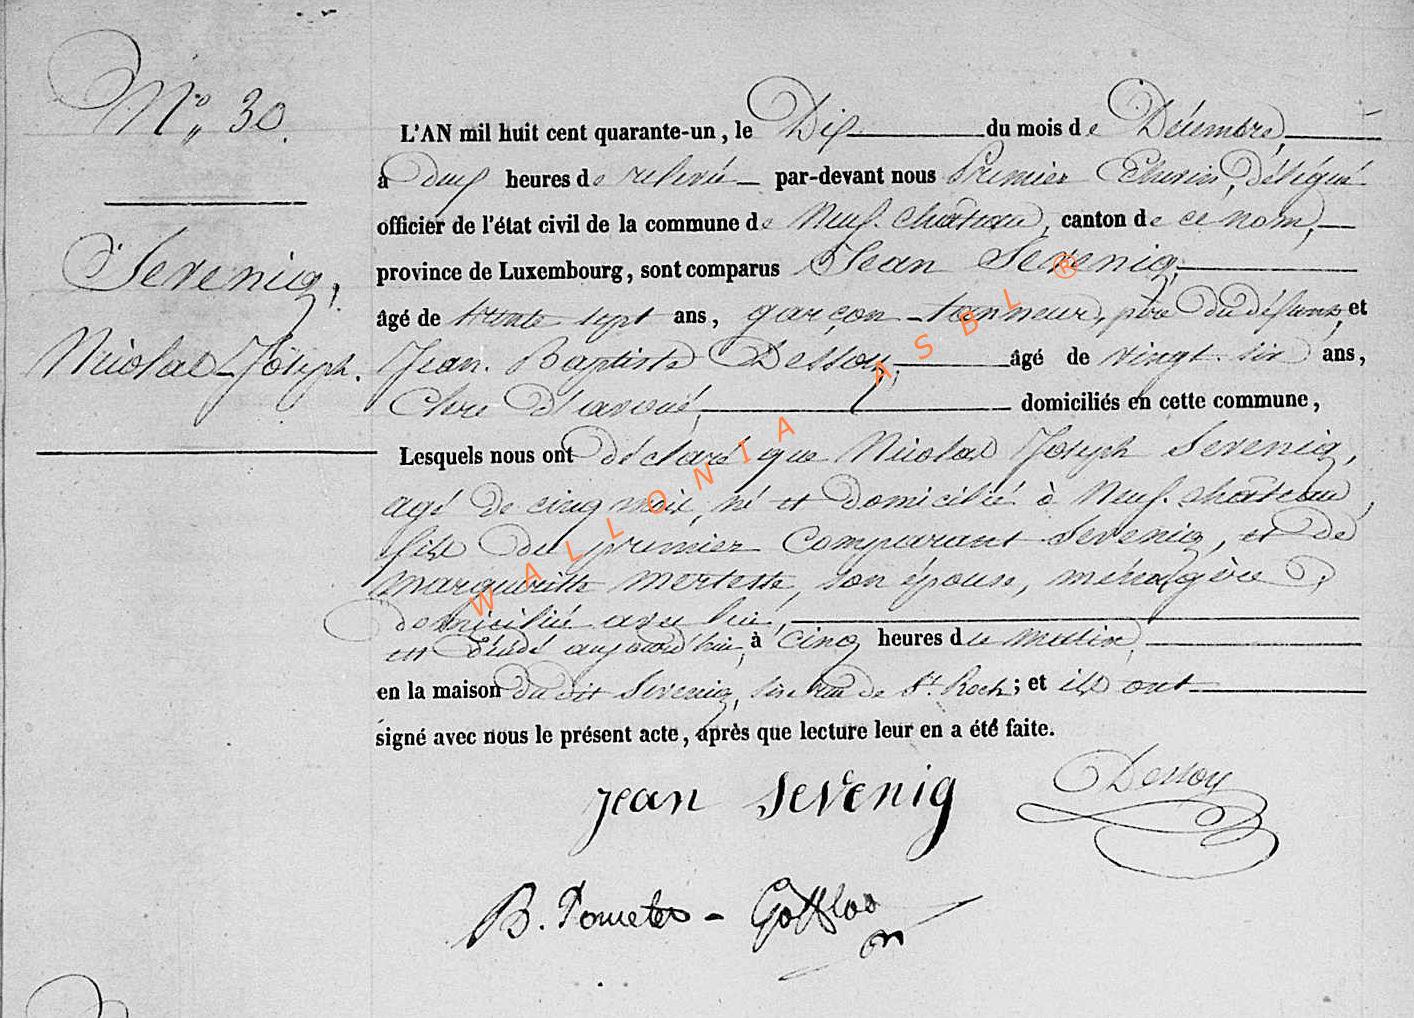 N° 30.
Sevenig,
Nicolas-Joseph.
L'AN mil huit cent quarante-un, le Dix du mois de Décembre,
à deux heures de relevée par-devant nous Premier Echevin, délégué
officier de l'état civil de la commune de Neuf-château, canton de ce nom,
province de Luxembourg, sont comparus Jean Sevenig,
âgé de trente sept ans, garçon-tanneur, père du défunt, et
Jean-Baptiste Dessoy, âgé de vingt-six ans,
Clerc d'avoué, domiciliés en cette commune,
Lesquels nous ont déclaré que Nicolas Joseph Sevenig,
agé de cinq mois, né et domicilié à Neuf-château,
fils du premier Comparant Sevenig, et de
Marguerite son épouse, ménagère
domiciliée avec lui,
est décédé aujourd'hui, à cinq heures du matin,
en la maison du dit Sevenig, rue de St. Roch; et ils ont
signé avec nous le présent acte, après que lecture leur en a été faite.
Jean Sevenig Dessoy
B.
WALLONIA ASBL ®